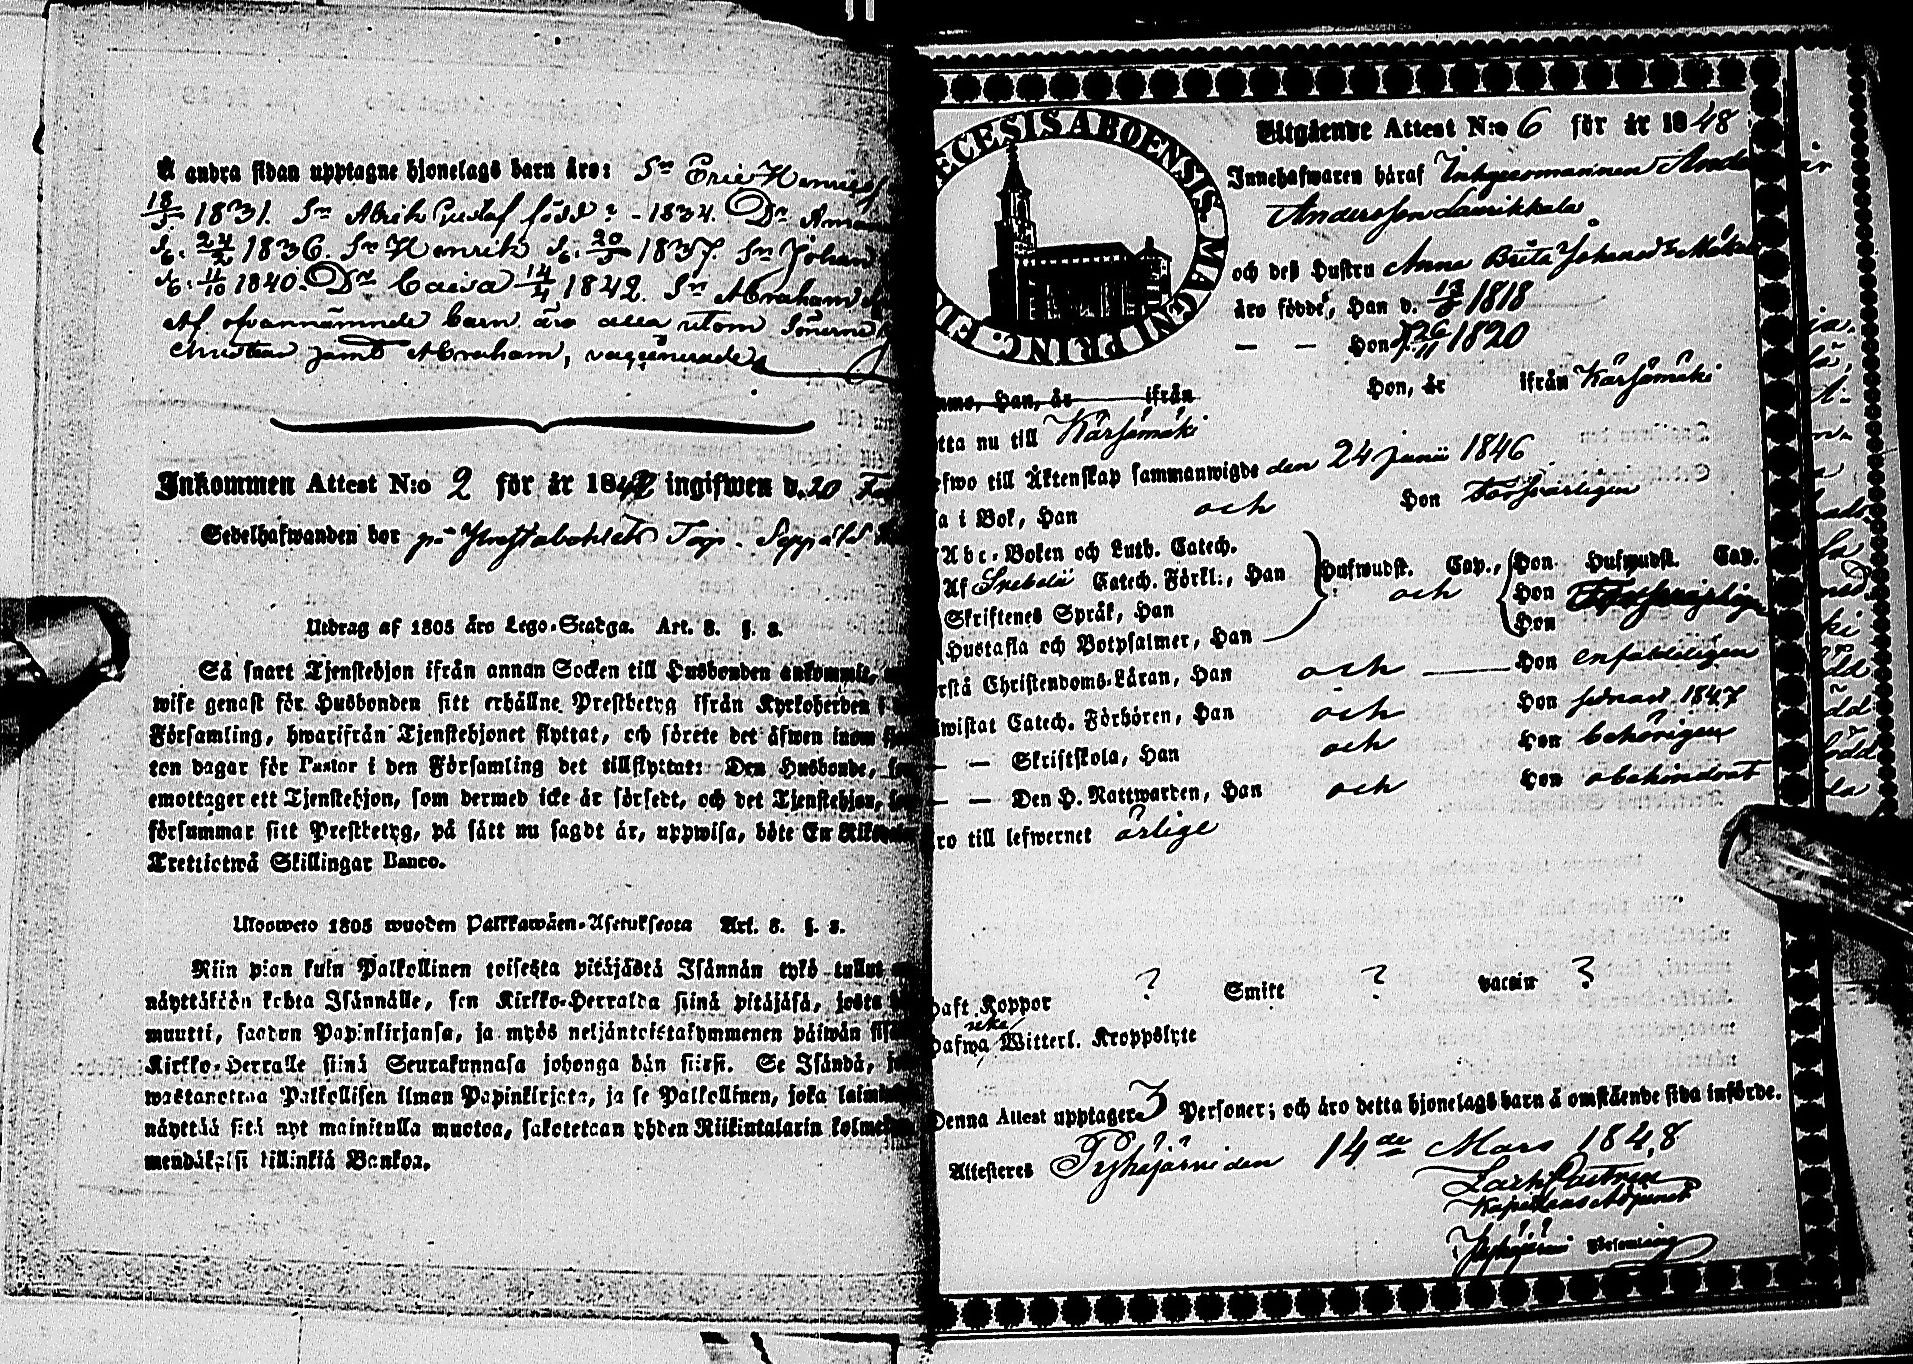 Å andra sidan upptagne hjonelags barn äro: Sn Eric Henrics
18/5 1831. Sn Abrik Gustaf född ? - 1834. Dr
d: 24/2 1836. Sn Henrik d: 20/5 1837. Sn Johan
d: 11/10 1840. Dr Caisa 14/4 1842. Sn Abraham
Af ofvannämnde barn äro alla utom Sönerne
jemte Abraham, vaccinerade
Inkommen Attest N:o 2 för år 1842 ingifwen d. 20
Sedelhafwanden bor på
Utdrag af 1805 års Lego-Stadga. Art. 8. §. 8.
Så snart Tjenstehjon ifrån annan Socken till Husbonden ankommit,
wise genast för Husbonden sitt erhållne Prestbetyg ifrån Kyrkoherden i
Församling, hwarifrån Tjenstehjonet flyttat, och förete det äfwen inom
ton dagar för Pastor i den Församling det tillflyttat: Den Husbonde,
emottager ett Tjenstehjon, som dermed icke är försedt, och det Tjenstehjon,
försummar sitt Prestbetyg, på sätt nu sagdt är, uppwisa, böte En
Trettiotwå Skillingar Banco.
Ulosweto 1805 wuoden Palkkawäen-Asetuksesta Art. 8. §. 8.
Niin pian kuin Palkollinen toisesta pitäjästä Isännän tykö tullut
näyttäköön kohta Isännälle, sen Kirkko-Herralda siinä pitäjäsä, josta
muutti, saadun Papinkirjansa, ja myös neljäntoistakymmenen päiwän
Kirkko-Herralle siinä Seurakunnasa johonga hän siirsi. Se Isändä,
wastanottaa Palkollisen ilman Papinkirjata, ja se Palkollinen, joka
näyttää sitä nyt mainitulla muotoa, sakotetaan yhden Riikintalarin
mendäkaksi killinkiä Bankoa.
ECESIS ABOENSIS. MAGNI PRINC. FI
Utgående Attest N:o 6 för år 1848
Innehafwaren häraf Inhysesmannen
Andersson Laurikkala
och deß Hustru Anna Brita Johansdr
äro födde, Han d. 1818
— — Hon d. 26/11 1820
Han, är ifrån Hon, är ifrån Kärsämäki
tta nu till Kärsämäki
fwo till Äktenskap sammanwigde den 24 Junii 1846
a i Bok, Han och Hon försvarligen
Abc-Boken och Luth. Catech.
Af Svebelii Catech. Förkl:, Han Hufwudst. Cap., Hon Hufwudst. Cap.
och Hon försvarligen
Skriftenes Språk, Han Hon
Hustafla och Botpsalmer, Han
rstå Christendoms-Läran, Han och Hon enfaldeligen
wistat Catech. Förhören, Han och Hon 1847
— — Skriftskola, Han och Hon behörigen
— — Den H. Nattwarden, Han och Hon obehindrat
ro till lefwernet ärlige
haft Koppor ? Smitt ? vaccin ?
hafwa icke Witterl. Kroppslyte
Denna Attest upptager 3 Personer; och äro detta hjonelags barn å omstående sida införde.
Attesteras Pyhäjärvi den 14de Mars 1848
Kapellans adjunct
Pyhäjärvi församling